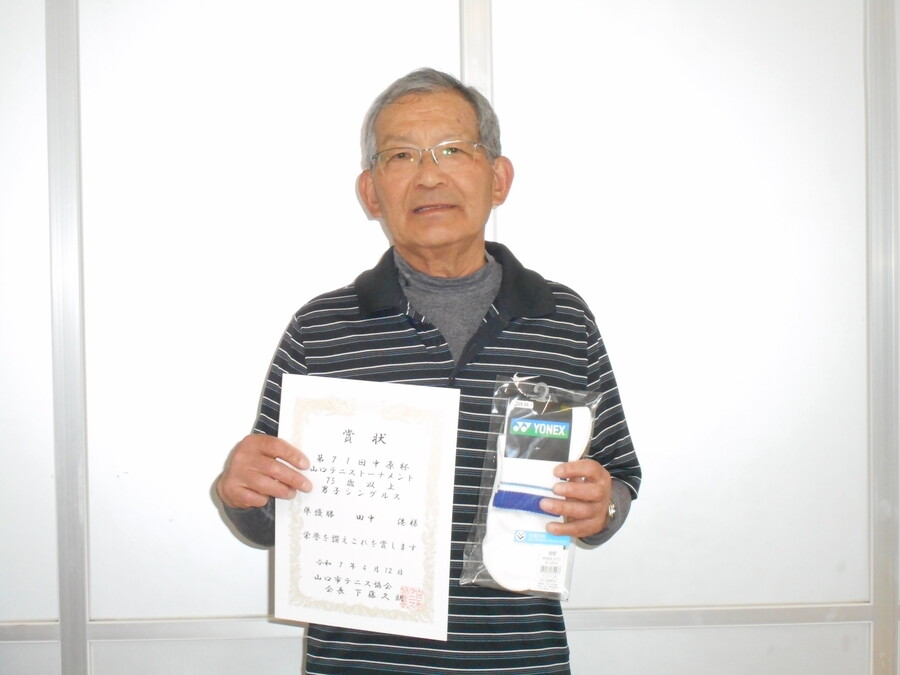 賞状
第71回中原杯
山口テニストーナメント
75歳以上
男子シングルス
準優勝 田中 様
栄誉を讃えこれを賞します
令和7年4月12日
山口市テニス協会
会長 下藤久
YONEX